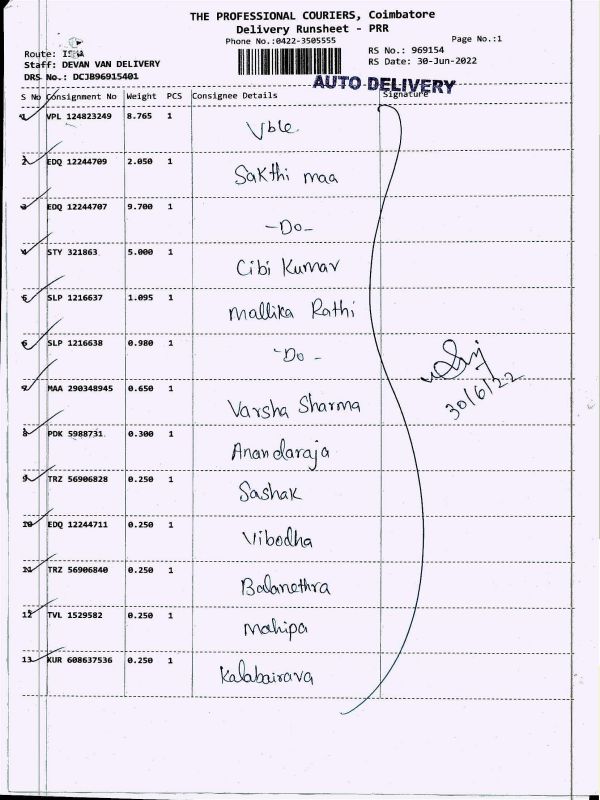 THE PROFESSIONAL COURIERS, Coimbatore
Delivery Runsheet - PRR
Phone No.:0422-3505555
Page No.:1
Route: ISHA
RS No.: 969154
Staff: DEVAN VAN DELIVERY
RS Date: 30-Jun-2022
DRS No.: DCJB96915401
AUTO DELIVERY
S No Consignment No Weight PCS Consignee Details Signature
1 VPL 124823249 8.765 1
Vble
2 EDQ 12244709 2.050 1
Sakthi maa
3 EDQ 12244707 9.700 1
-Do-
4 STY 321863 5.000 1
Cibi Kumar
5 SLP 1216637 1.095 1
Mallika Rathi
6 SLP 1216638 0.980 1
-Do-
7 MAA 290348945 0.650 1
Varsha Sharma
30/6/22
8 PDK 5988731 0.300 1
Anandaraja
9 TRZ 56906828 0.250 1
Sashak
10 EDQ 12244711 0.250 1
Vibodha
11 TRZ 56906840 0.250 1
Balanethra
12 TVL 1529582 0.250 1
Mahipa
13 KUR 608637536 0.250 1
Kalabairava